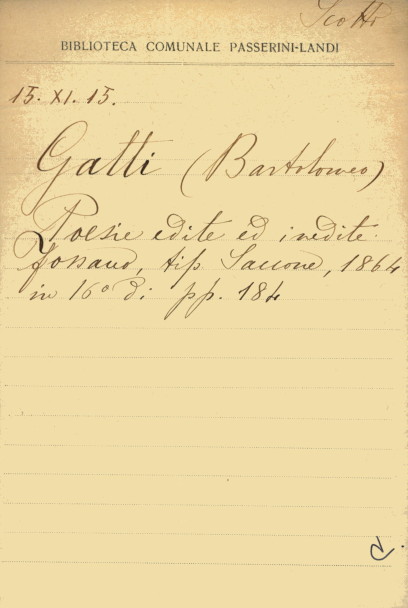 Scotti
BIBLIOTECA COMUNALE PASSERINI-LANDI
15. XI. 15.
Gatti (Bartolomeo)
Poesie edite ed inedite.
Fossano, tip Saccone, 1864
in 16° di pp. 184